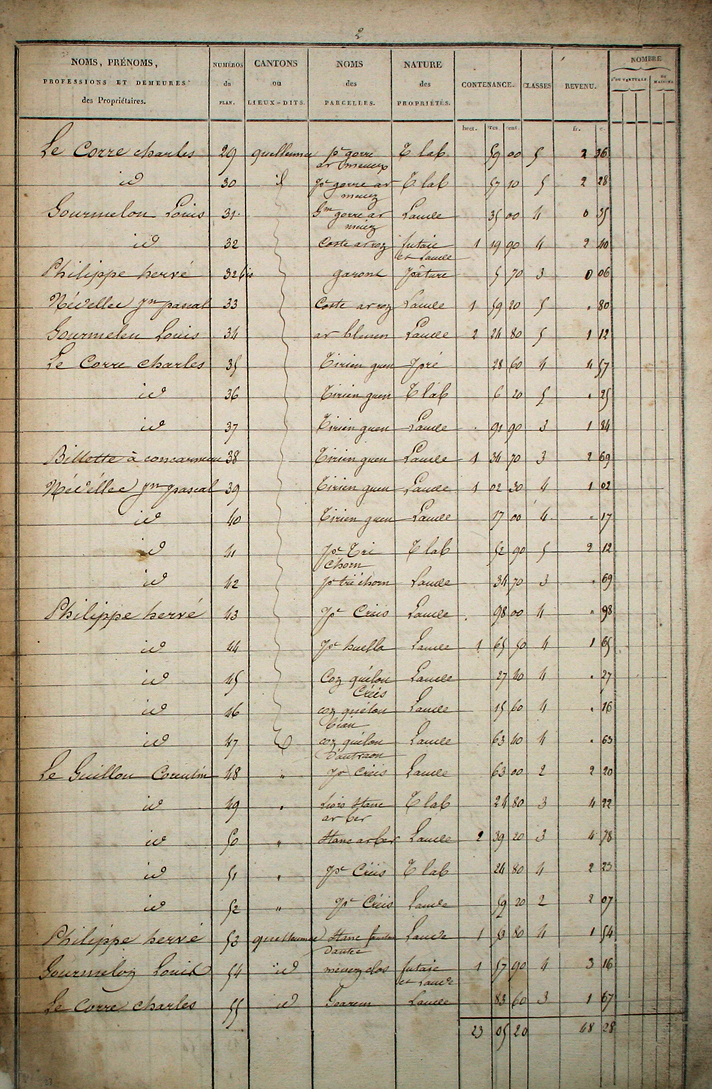 2
NOMS, PRÉNOMS, PROFESSIONS ET DEMEURES des Propriétaires. NUMÉROS du PLAN. CANTONS ou LIEUX-DITS. NOMS des PARCELLES. NATURE des PROPRIÉTÉS. CONTENANCE. CLASSES REVENU. NOMBRE
hect. ares cent. fr. c.
Le Corre charles 29 pc gorre ar menez T lab. 59 00 5 2 36
id 30 id pc gorre ar menez T lab 57 10 5 2 28
Gourmelon Louis 31 gorre ar menez Lande 35 00 4 0 35
id 32 Coste ar roz futaie et Lande 1 19 90 4 2 40
Philippe hervé 32 bis garont pature 5 70 3 0 06
Névellec jn pascal 33 Coste ar roz Lande 1 59 20 5 " 80
Gourmelen Louis 34 ar bleunn Lande 2 24 80 5 1 12
Le Corre charles 35 Tirien guen pré 28 60 4 4 57
id 36 Tirien guen T lab 6 20 5 " 25
id 37 Tirien guen Lande " 91 90 3 1 84
Billette à concarneau 38 Tirien guen Lande 1 34 70 3 2 69
Névellec jn pascal 39 Tirien guen Lande 1 02 30 4 1 02
id 40 Tirien guen Lande 17 00 4 " 17
id 41 pc Tri chorn T lab 52 90 5 2 12
id 42 pc tri chorn Lande 34 70 3 " 69
Philippe hervé 43 pc Creis Lande 98 00 4 " 98
id 44 pc huella Lande 1 65 50 4 1 65
id 45 Coz quélou Creis Lande 27 40 4 " 27
id 46 coz quélou bian Lande 15 60 4 " 16
id 47 coz quélou Dantraon Lande 63 40 4 " 63
Le Guillou Corentin 48 " pc Creis Lande 63 00 2 2 20
id 49 " Liors Stanc ar ber T lab 24 80 3 4 22
id 50 " Stanc ar ber Lande 2 39 20 3 4 78
id 51 " pc Creis T lab 24 80 4 2 23
id 52 " pc Creis Lande 59 20 2 2 07
Philippe hervé 53 Stanc Lande 1 53 80 4 1 54
Gourmelon Louis 54 id menez clos futaie et Lande 1 57 90 4 3 16
Le Corre charles 55 id Goarem Lande 83 60 3 1 67
23 05 20 68 28